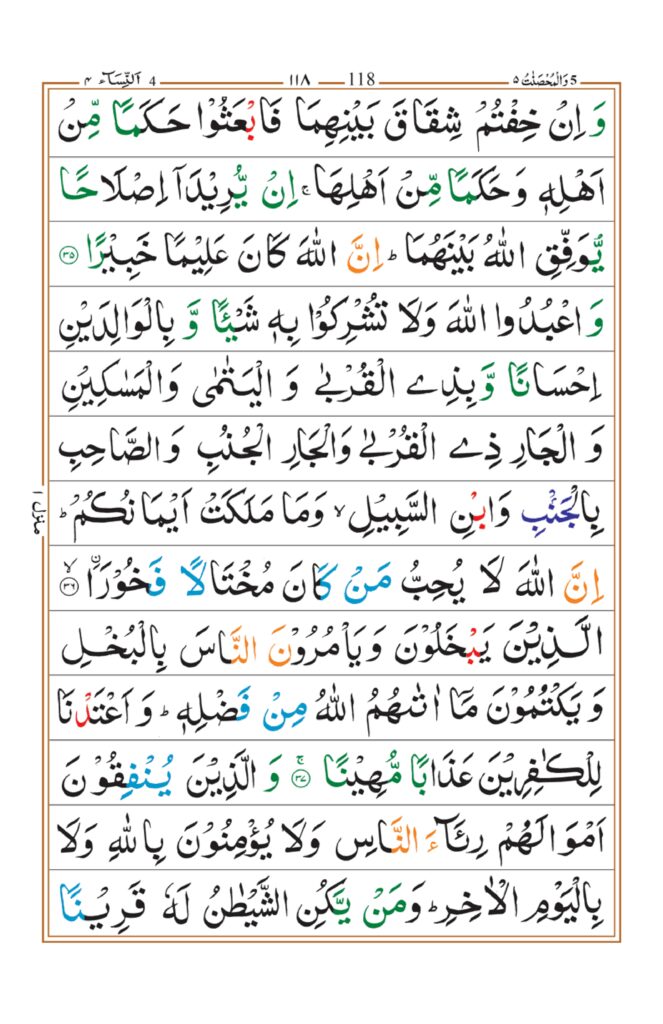 5 وَالْمُحْصَنٰتُ ۵ 118 ۱۱۸ 4 اَلنِّسَآء ۴
وَ اِنْ خِفْتُمْ شِقَاقَ بَيْنِهِمَا فَابْعَثُوْا حَكَمًا مِّنْ
اَهْلِهٖ وَ حَكَمًا مِّنْ اَهْلِهَا ۚ اِنْ يُّرِيْدَآ اِصْلَاحًا
يُّوَفِّقِ اللّٰهُ بَيْنَهُمَا ؕ اِنَّ اللّٰهَ كَانَ عَلِيْمًا خَبِيْرًا ۝۳۵
وَ اعْبُدُوا اللّٰهَ وَلَا تُشْرِكُوْا بِهٖ شَيْـًٔا وَّ بِالْوَالِدَيْنِ
اِحْسَانًا وَّ بِذِے الْقُرْبٰے وَ الْيَتٰمٰى وَالْمَسٰكِيْنِ
وَ الْجَارِ ذِے الْقُرْبٰے وَالْجَارِ الْجُنُبِ وَالصَّاحِبِ
بِالْجَنْۢبِ وَابْنِ السَّبِيْلِ ۙ وَمَا مَلَكَتْ اَيْمَانُكُمْ ؕ
اِنَّ اللّٰهَ لَا يُحِبُّ مَنْ كَانَ مُخْتَالًا فَخُوْرَاۨ ۝۳۶ۙ
الَّذِيْنَ يَبْخَلُوْنَ وَيَاْمُرُوْنَ النَّاسَ بِالْبُخْلِ
وَ يَكْتُمُوْنَ مَآ اٰتٰىهُمُ اللّٰهُ مِنْ فَضْلِهٖ ؕ وَ اَعْتَدْنَا
لِلْكٰفِرِيْنَ عَذَابًا مُّهِيْنًا ۝۳۷ۚ وَ الَّذِيْنَ يُنْفِقُوْنَ
اَمْوَالَهُمْ رِئَآءَ النَّاسِ وَلَا يُؤْمِنُوْنَ بِاللّٰهِ وَلَا
بِالْيَوْمِ الْاٰخِرِ ؕ وَمَنْ يَّكُنِ الشَّيْطٰنُ لَهٗ قَرِيْنًا
منزل ۱